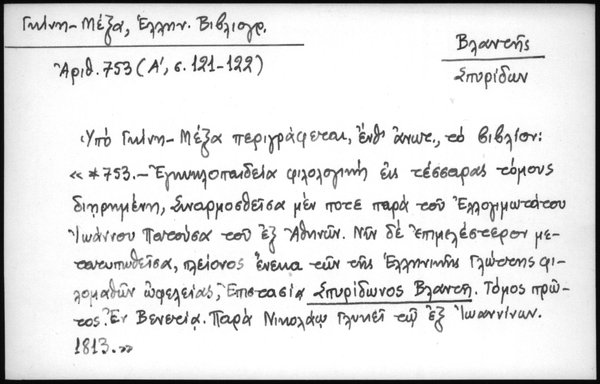 Γκίνη-Μέξα, Ἑλλην. Βιβλιογρ.
Ἀριθ. 753 (Α', σ. 121-122)
Βλαντῆς
Σπυρίδων
Ὑπό Γκίνη-Μέξα περιγράφεται, ἔνθ' ἄνωτ., τό βιβλίον:
«*753.- Ἐγκυκλοπαιδεία φιλολογική εἰς τέσσαρας τόμους
διῃρημένη, Συναρμοσθεῖσα μέν ποτε παρά τοῦ Ἐλλογιμωτάτου
Ἰωάννου Πατούσα τοῦ ἐξ Ἀθηνῶν. Νῦν δέ ἐπιμελέστερον με-
τατυπωθεῖσα, πλείονος ἕνεκα τῶν τῆς Ἑλληνικῆς Γλώττης φι-
λομαθῶν ὠφελείας, Ἐπιστασίᾳ Σπυρίδωνος Βλαντῆ. Τόμος πρῶ-
τος. Ἐν Βενετίᾳ. Παρά Νικολάῳ Γλυκεῖ τῷ ἐξ Ἰωαννίνων.
1813.»